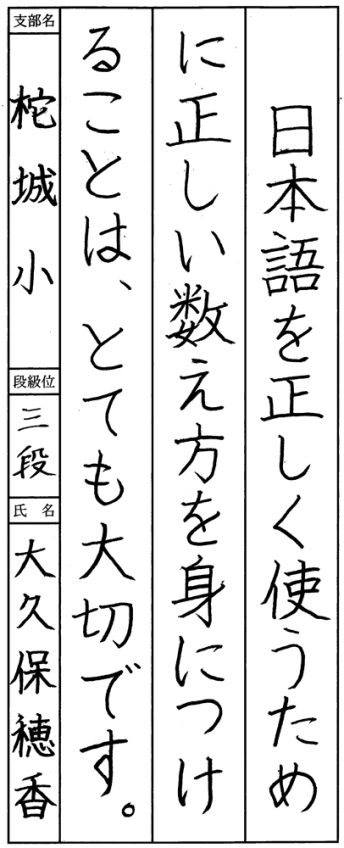 日本語を正しく使うため
に正しい数え方を身につけ
ることは、とても大切です。
支部名
柁城小
段級位
三段
氏名
大久保穂香